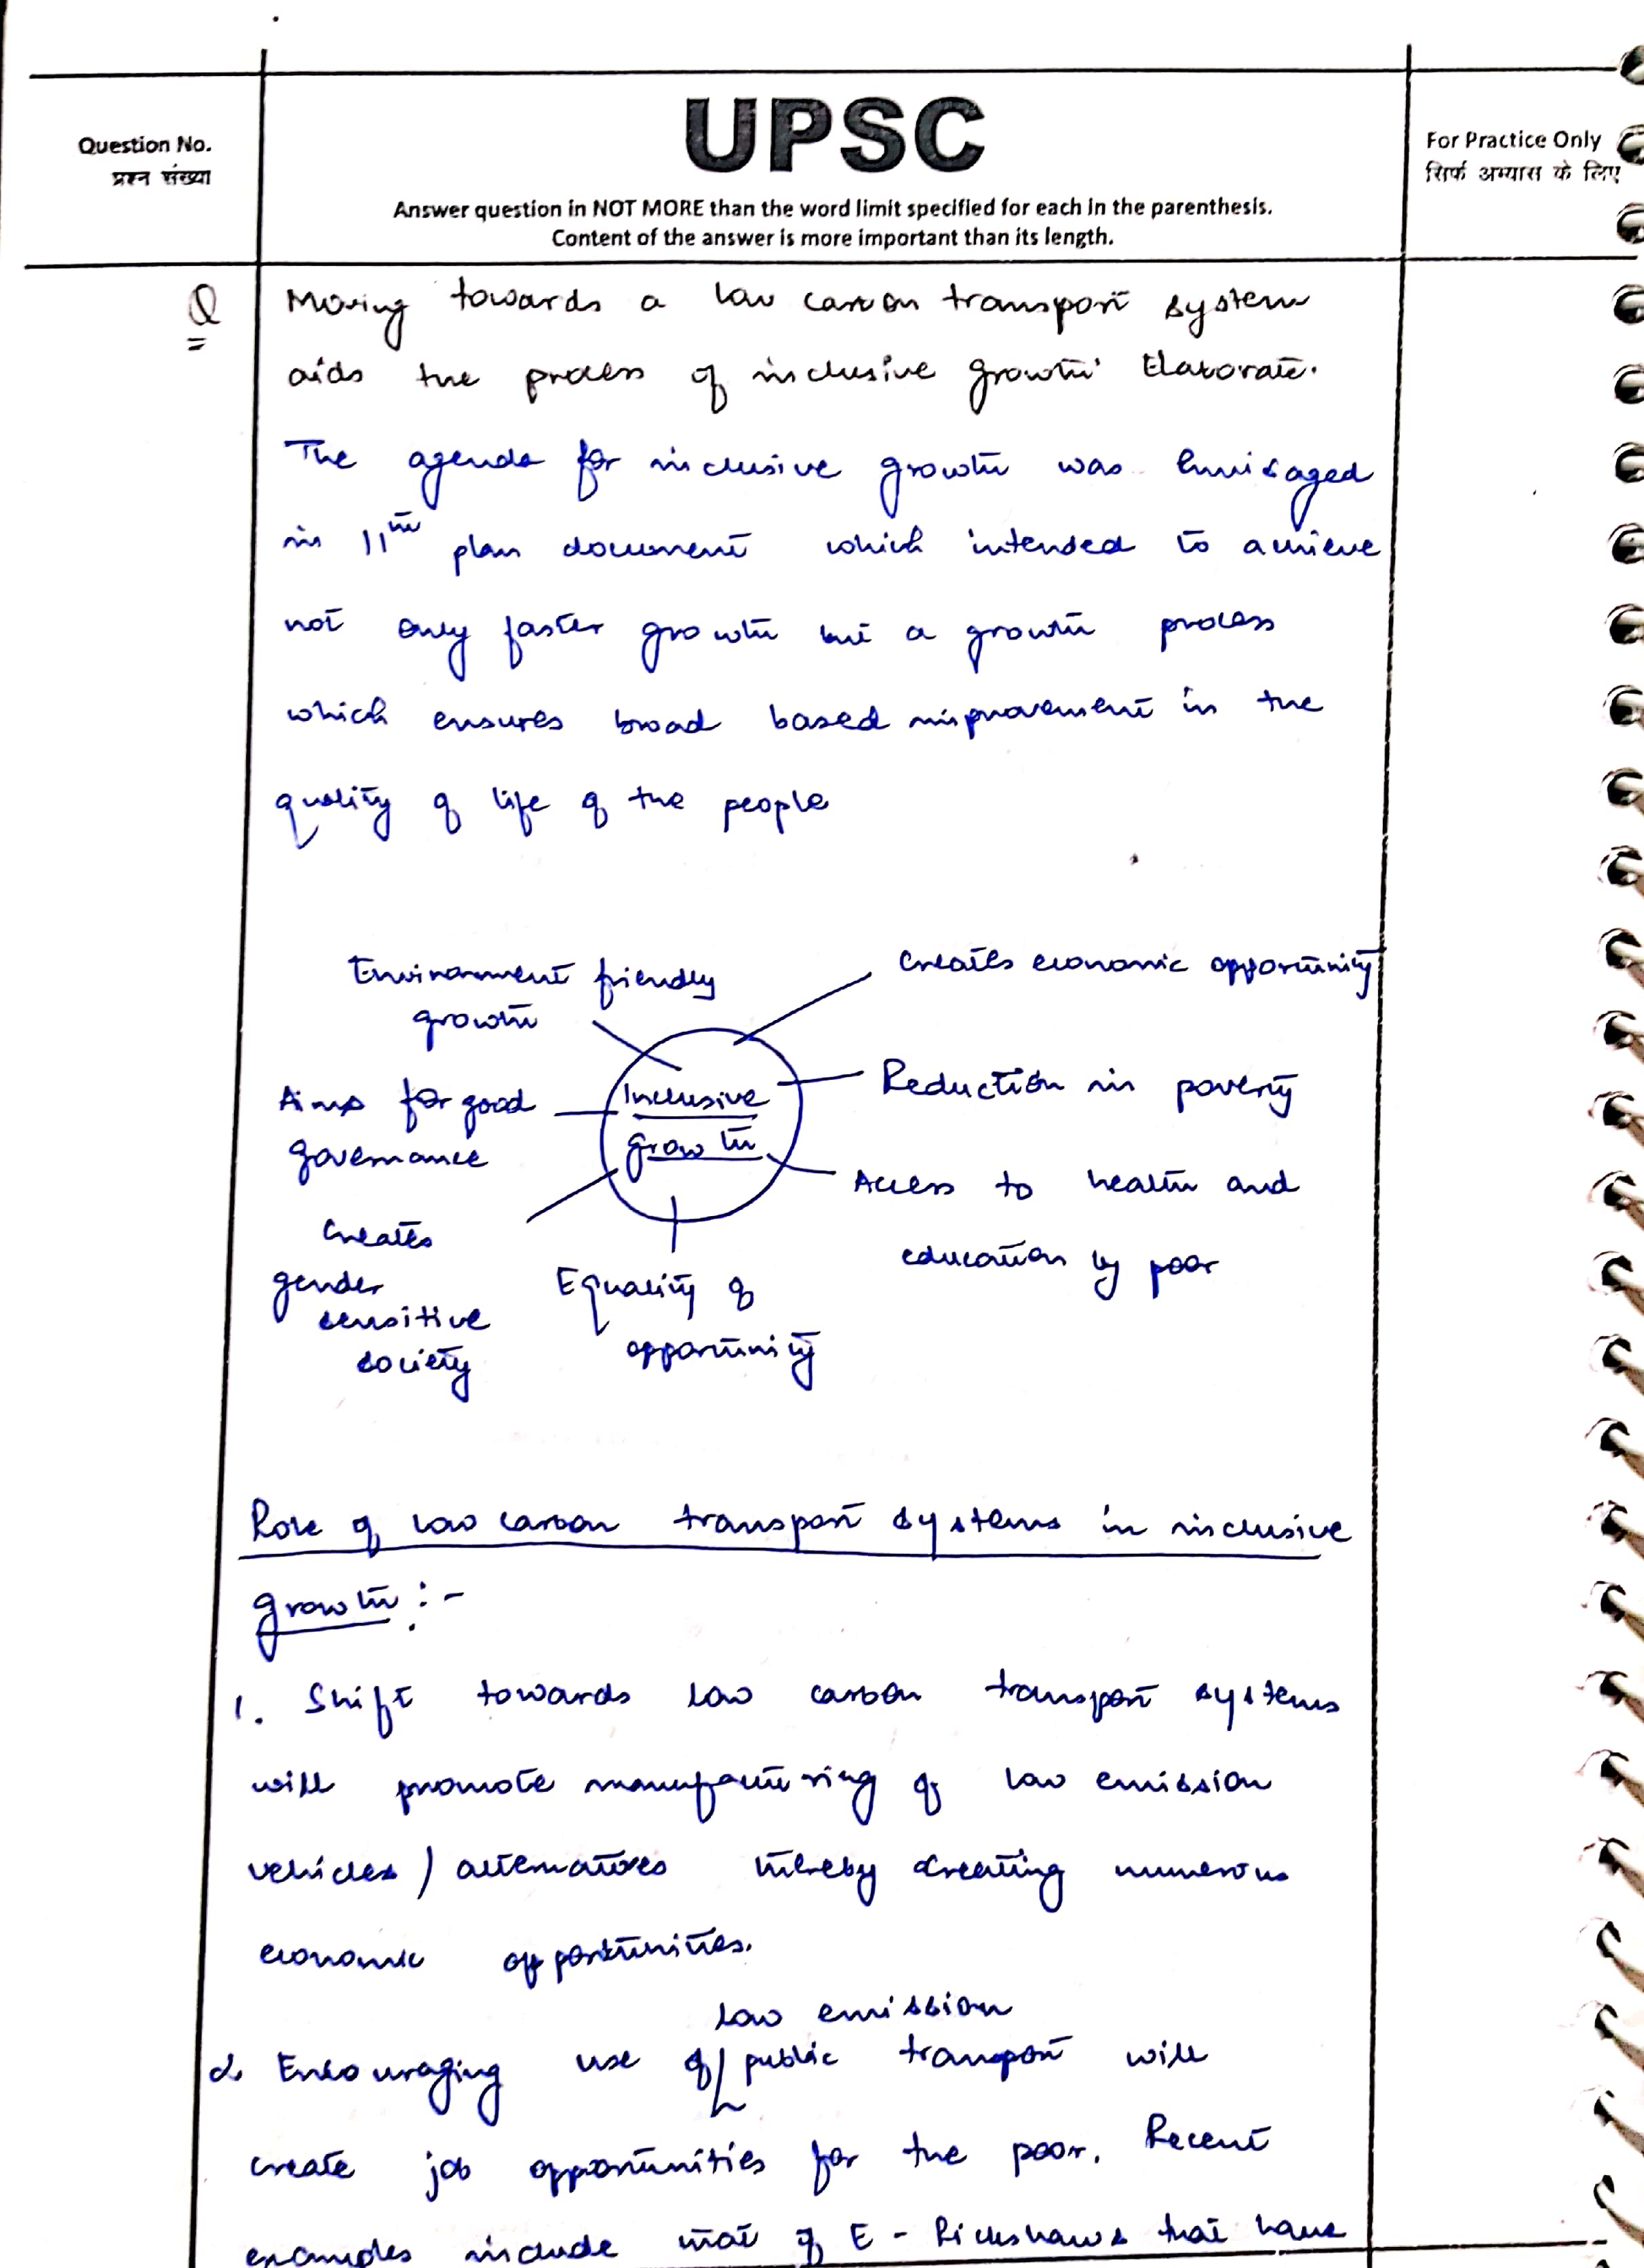 Question No.
प्रश्न संख्या
UPSC
Answer question in NOT MORE than the word limit specified for each in the parenthesis.
Content of the answer is more important than its length.
For Practice Only
सिर्फ अभ्यास के लिए
Q Moving towards a low carbon transport system
aids the process of inclusive growth' Elaborate.
The agenda for inclusive growth was envisaged
in 11th plan document which intended to achieve
not only faster growth but a growth process
which ensures broad based improvement in the
quality of life of the people
Environment friendly
growth
Creates economic opportunity
Aims for good
governance
Inclusive
growth
Reduction in poverty
Access to health and
education by poor
Creates
gender
sensitive
society
Equality of
opportunity
Role of low carbon transport systems in inclusive
growth :-
1. Shift towards low carbon transport systems
will promote manufacturing of low emission
vehicles / alternatives thereby creating numerous
economic opportunities.
low emission
2. Encouraging use of public transport will
create job opportunities for the poor. Recent
examples include that of E-Rickshaws that have